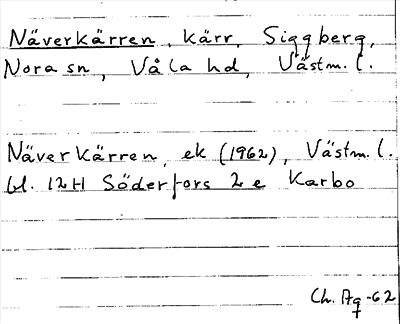 Näverkärren, kärr, Siggberg,
Nora sn, Våla hd, Västm. l.
Näverkärren, ek (1962), Västm. l.
bl. 12H Söderfors 2 e Karbo
Ch. Ag -62